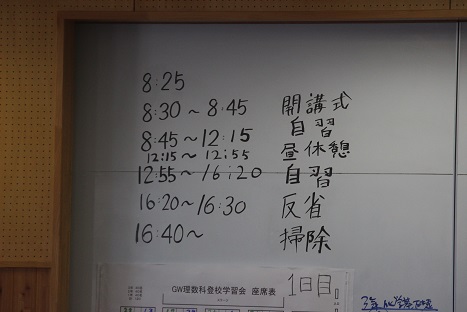 8:25
8:30～8:45 開講式
8:45～12:15 自習
12:15～12:55 昼休憩
12:55～16:20 自習
16:20～16:30 反省
16:40～ 掃除
GW理数科登校学習会 座席表
1日目